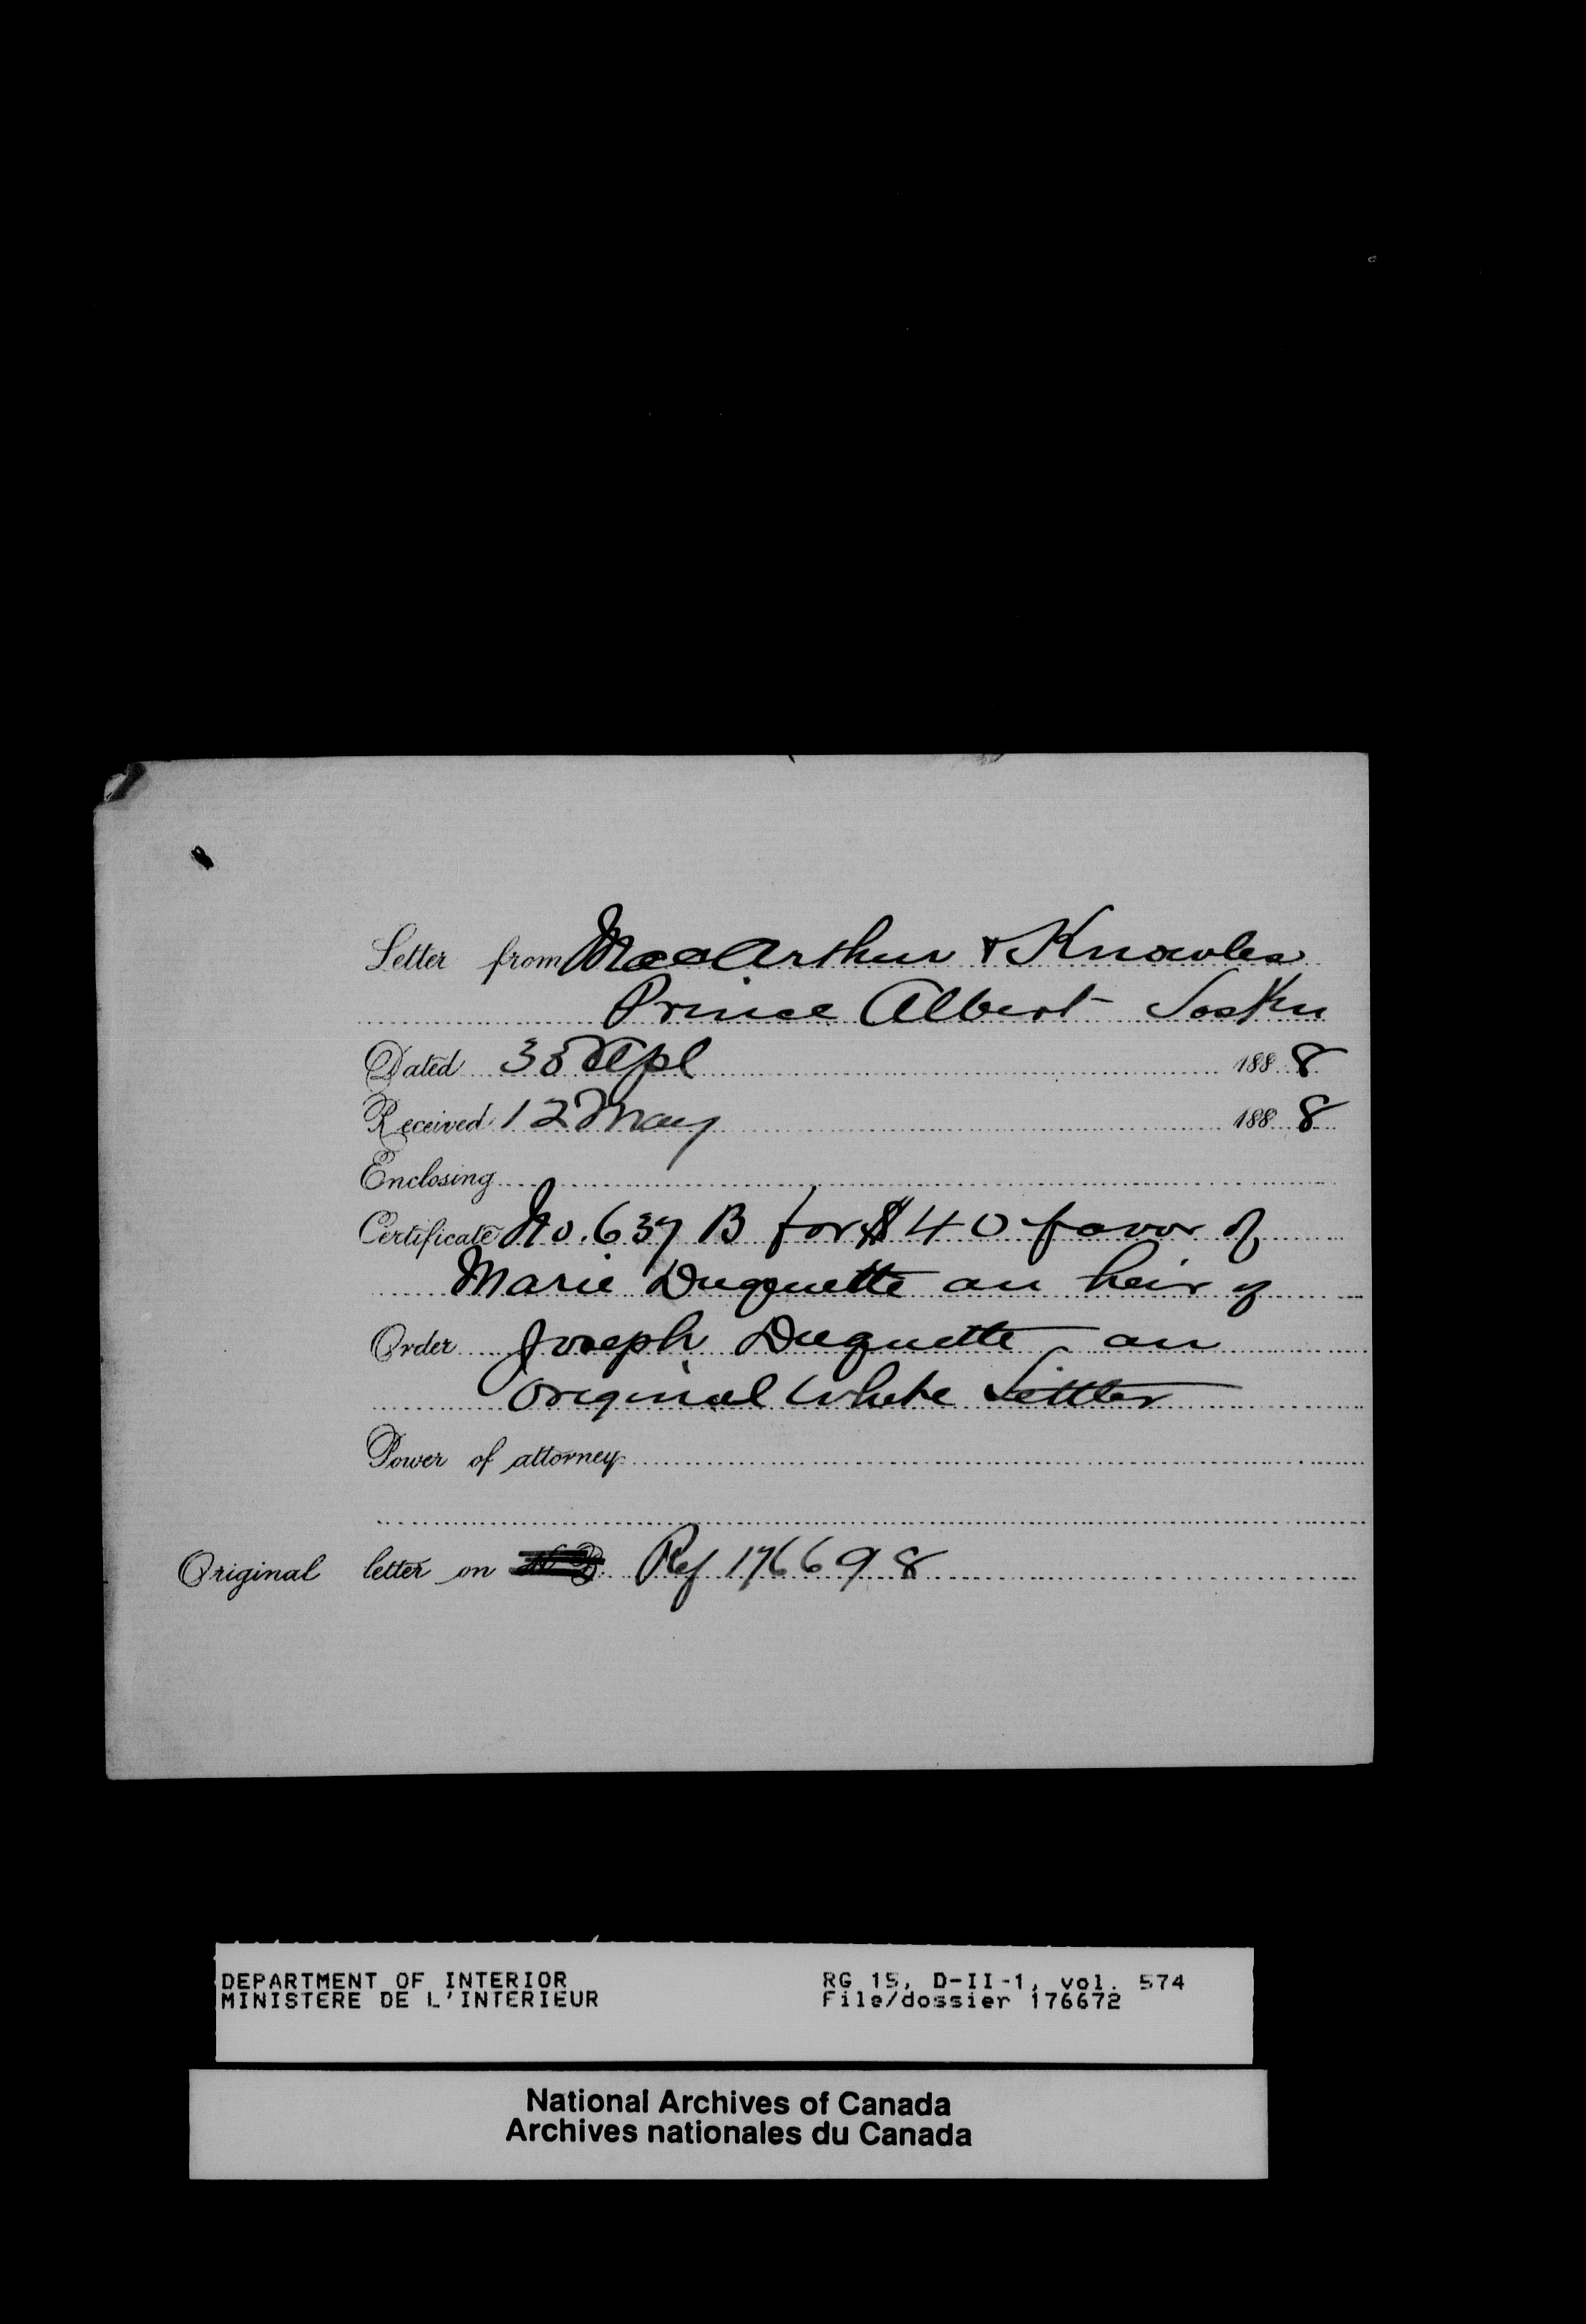 Letter from MacArthur & Knowles
Prince Albert Saskn
Dated 30 Apl 1888
Received 12 May 1888
Enclosing
Certificate No. 637 B for $40 favor of
Marie Duquette an heir of
Order Joseph Duquette an
Original White Settler
Power of attorney
Original letter on Ref 176698
DEPARTMENT OF INTERIOR RG 15, D-II-1, vol. 574
MINISTERE DE L'INTERIEUR File/dossier 176672
National Archives of Canada
Archives nationales du Canada